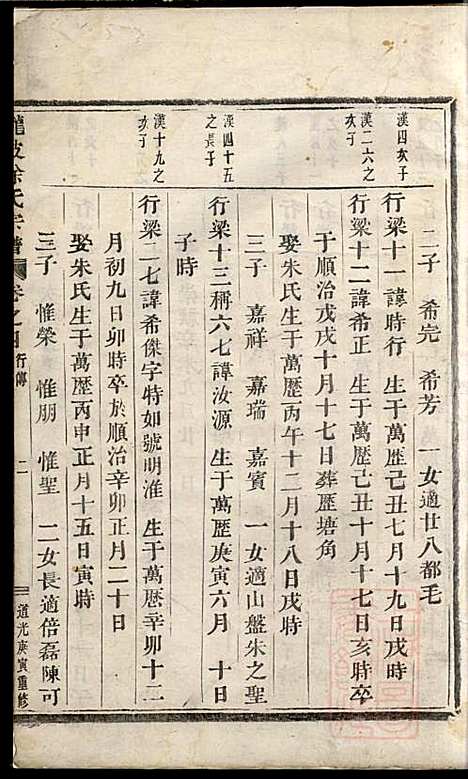 二子 希完 希芳 一女適廿八都毛
漢四亥子
行梁十一諱時行 生于萬歷己丑七月十九日戌時
漢二六之亥子
行梁十二諱希正 生于萬歷己丑十月十七日亥時卒
于順治戊戌十月十七日葬歷塘角
娶朱氏生于萬歷丙午十二月十八日戌時
三子 嘉祥 嘉瑞 嘉賓 一女適山盤朱之聖
漢四十五之長子
行梁十三稱六七諱汝源 生于萬歷庚寅六月 十日
子時
漢十九之亥子
行梁二七諱希傑字特如號明淮 生于萬歷辛卯十二
月初九日卯時卒於順治辛卯正月二十日
娶朱氏生于萬歷丙申正月十五日寅時
三子 惟榮 惟朋 惟聖 二女長適倍磊陳可
徐氏宗譜 卷之四 行傳 二 道光庚寅重修